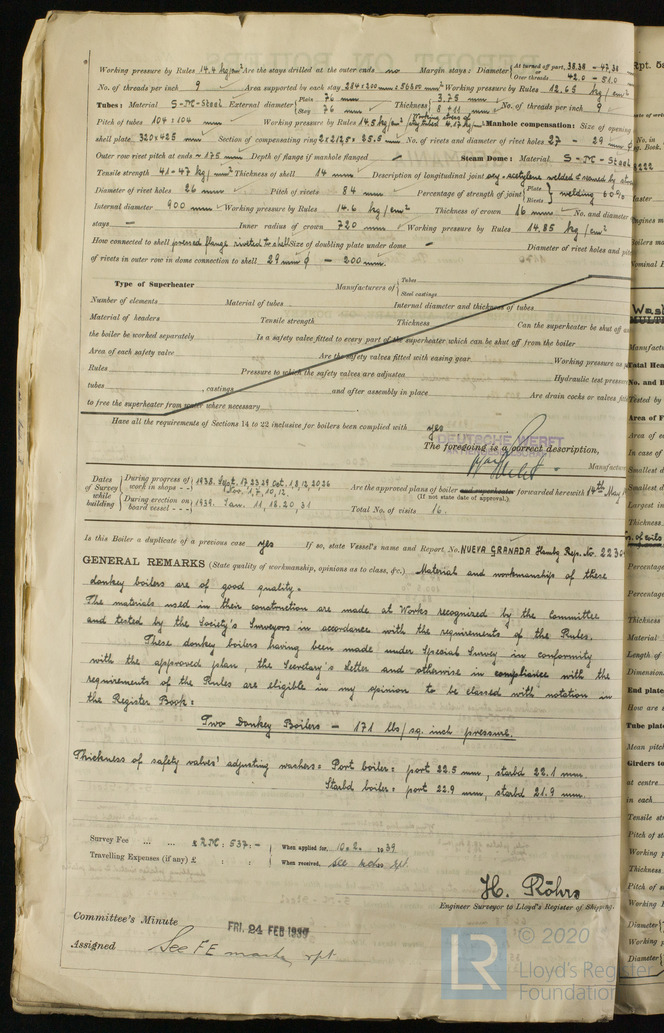 Working pressure by Rules 14.4 kg/cm² Are the stays drilled at the outer ends no Margin stays: Diameter { At turned off part, 38.38 - 47.38 or Over threads 42.0 - 51.0
No. of threads per inch 9 Area supported by each stay Working pressure by Rules 12.65 kg/cm²
Tubes: Material S-M-Steel External diameter { Plain 76 mm Stay 76 mm Thickness { 3.75 mm 8 + 11 mm No. of threads per inch 9
Pitch of tubes 104 x 104 mm Working pressure by Rules 14.5 kg/cm² Manhole compensation: Size of opening
shell plate 320x425 mm Section of compensating ring 2x212.5x25.5 mm No. of rivets and diameter of rivet holes 27 - 29 mm
Outer row rivet pitch at ends ~ 175 mm Depth of flange if manhole flanged - Steam Dome: Material S-M-Steel
Tensile strength 41-47 kg/mm² Thickness of shell 14 mm Description of longitudinal joint oxy-acetylene welded
Diameter of rivet holes 26 mm Pitch of rivets 84 mm Percentage of strength of joint { Plate Rivets } welding 60%
Internal diameter 900 mm Working pressure by Rules 14.6 kg/cm² Thickness of crown 16 mm No. and diameter
stays - Inner radius of crown 720 mm Working pressure by Rules 14.85 kg/cm²
How connected to shell pressed flange riveted to shell Size of doubling plate under dome - Diameter of rivet holes and pitch
of rivets in outer row in dome connection to shell 29 mm ϕ - 200 mm.
Type of Superheater Manufacturers of { Tubes Steel castings
Number of elements Material of tubes Internal diameter and thickness of tubes
Material of headers Tensile strength Thickness Can the superheater be shut off
the boiler be worked separately Is a safety valve fitted to every part of the superheater which can be shut off from the boiler
Area of each safety valve Are the safety valves fitted with easing gear Working pressure as
Rules Pressure to which the safety valves are adjusted Hydraulic test pressure
tubes , castings and after assembly in place Are drain cocks or valves
to free the superheater from water where necessary
Have all the requirements of Sections 14 to 22 inclusive for boilers been complied with yes
DEUTSCHE WERFT
The foregoing is a correct description,
Manufacturer
Dates of Survey while building { During progress of work in shops - - 1938. Sept. 17,23,29 Oct. 1,8,12,20,26 Nov. 1,7,10,12. Are the approved plans of boiler and superheater forwarded herewith 14th May
(If not state date of approval.)
During erection on board vessel - - - 1939. Jan. 11, 18, 20, 31 Total No. of visits 16.
Is this Boiler a duplicate of a previous case yes If so, state Vessel's name and Report No. NUEVA GRANADA Hambg Rep. No.
GENERAL REMARKS (State quality of workmanship, opinions as to class, &c.) Material and workmanship of these
donkey boilers are of good quality.
The materials used in their construction are made at Works recognized by the Committee
and tested by the Society's Surveyors in accordance with the requirements of the Rules.
These donkey boilers having been made under Special Survey in conformity
with the approved plan, the Secretary's Letter and otherwise in compliance with the
requirements of the Rules are eligible in my opinion to be classed with notation in
the Register Book:
Two Donkey Boilers - 171 lbs/sq. inch pressure.
Thickness of safety valves' adjusting washers: Port boiler: port 22.5 mm, starbd 22.1 mm.
Starbd boiler: port 22.9 mm, starbd 21.9 mm.
Survey Fee ... ... RM : 537 : - When applied for, 10.2. 1939
Travelling Expenses (if any) £ : : When received,
H. Röhrs
Engineer Surveyor to Lloyd's Register of Shipping.
Committee's Minute FRI. 24 FEB 1939
Assigned See F E rpt.
LR © 2020
Lloyd's Register
Foundation